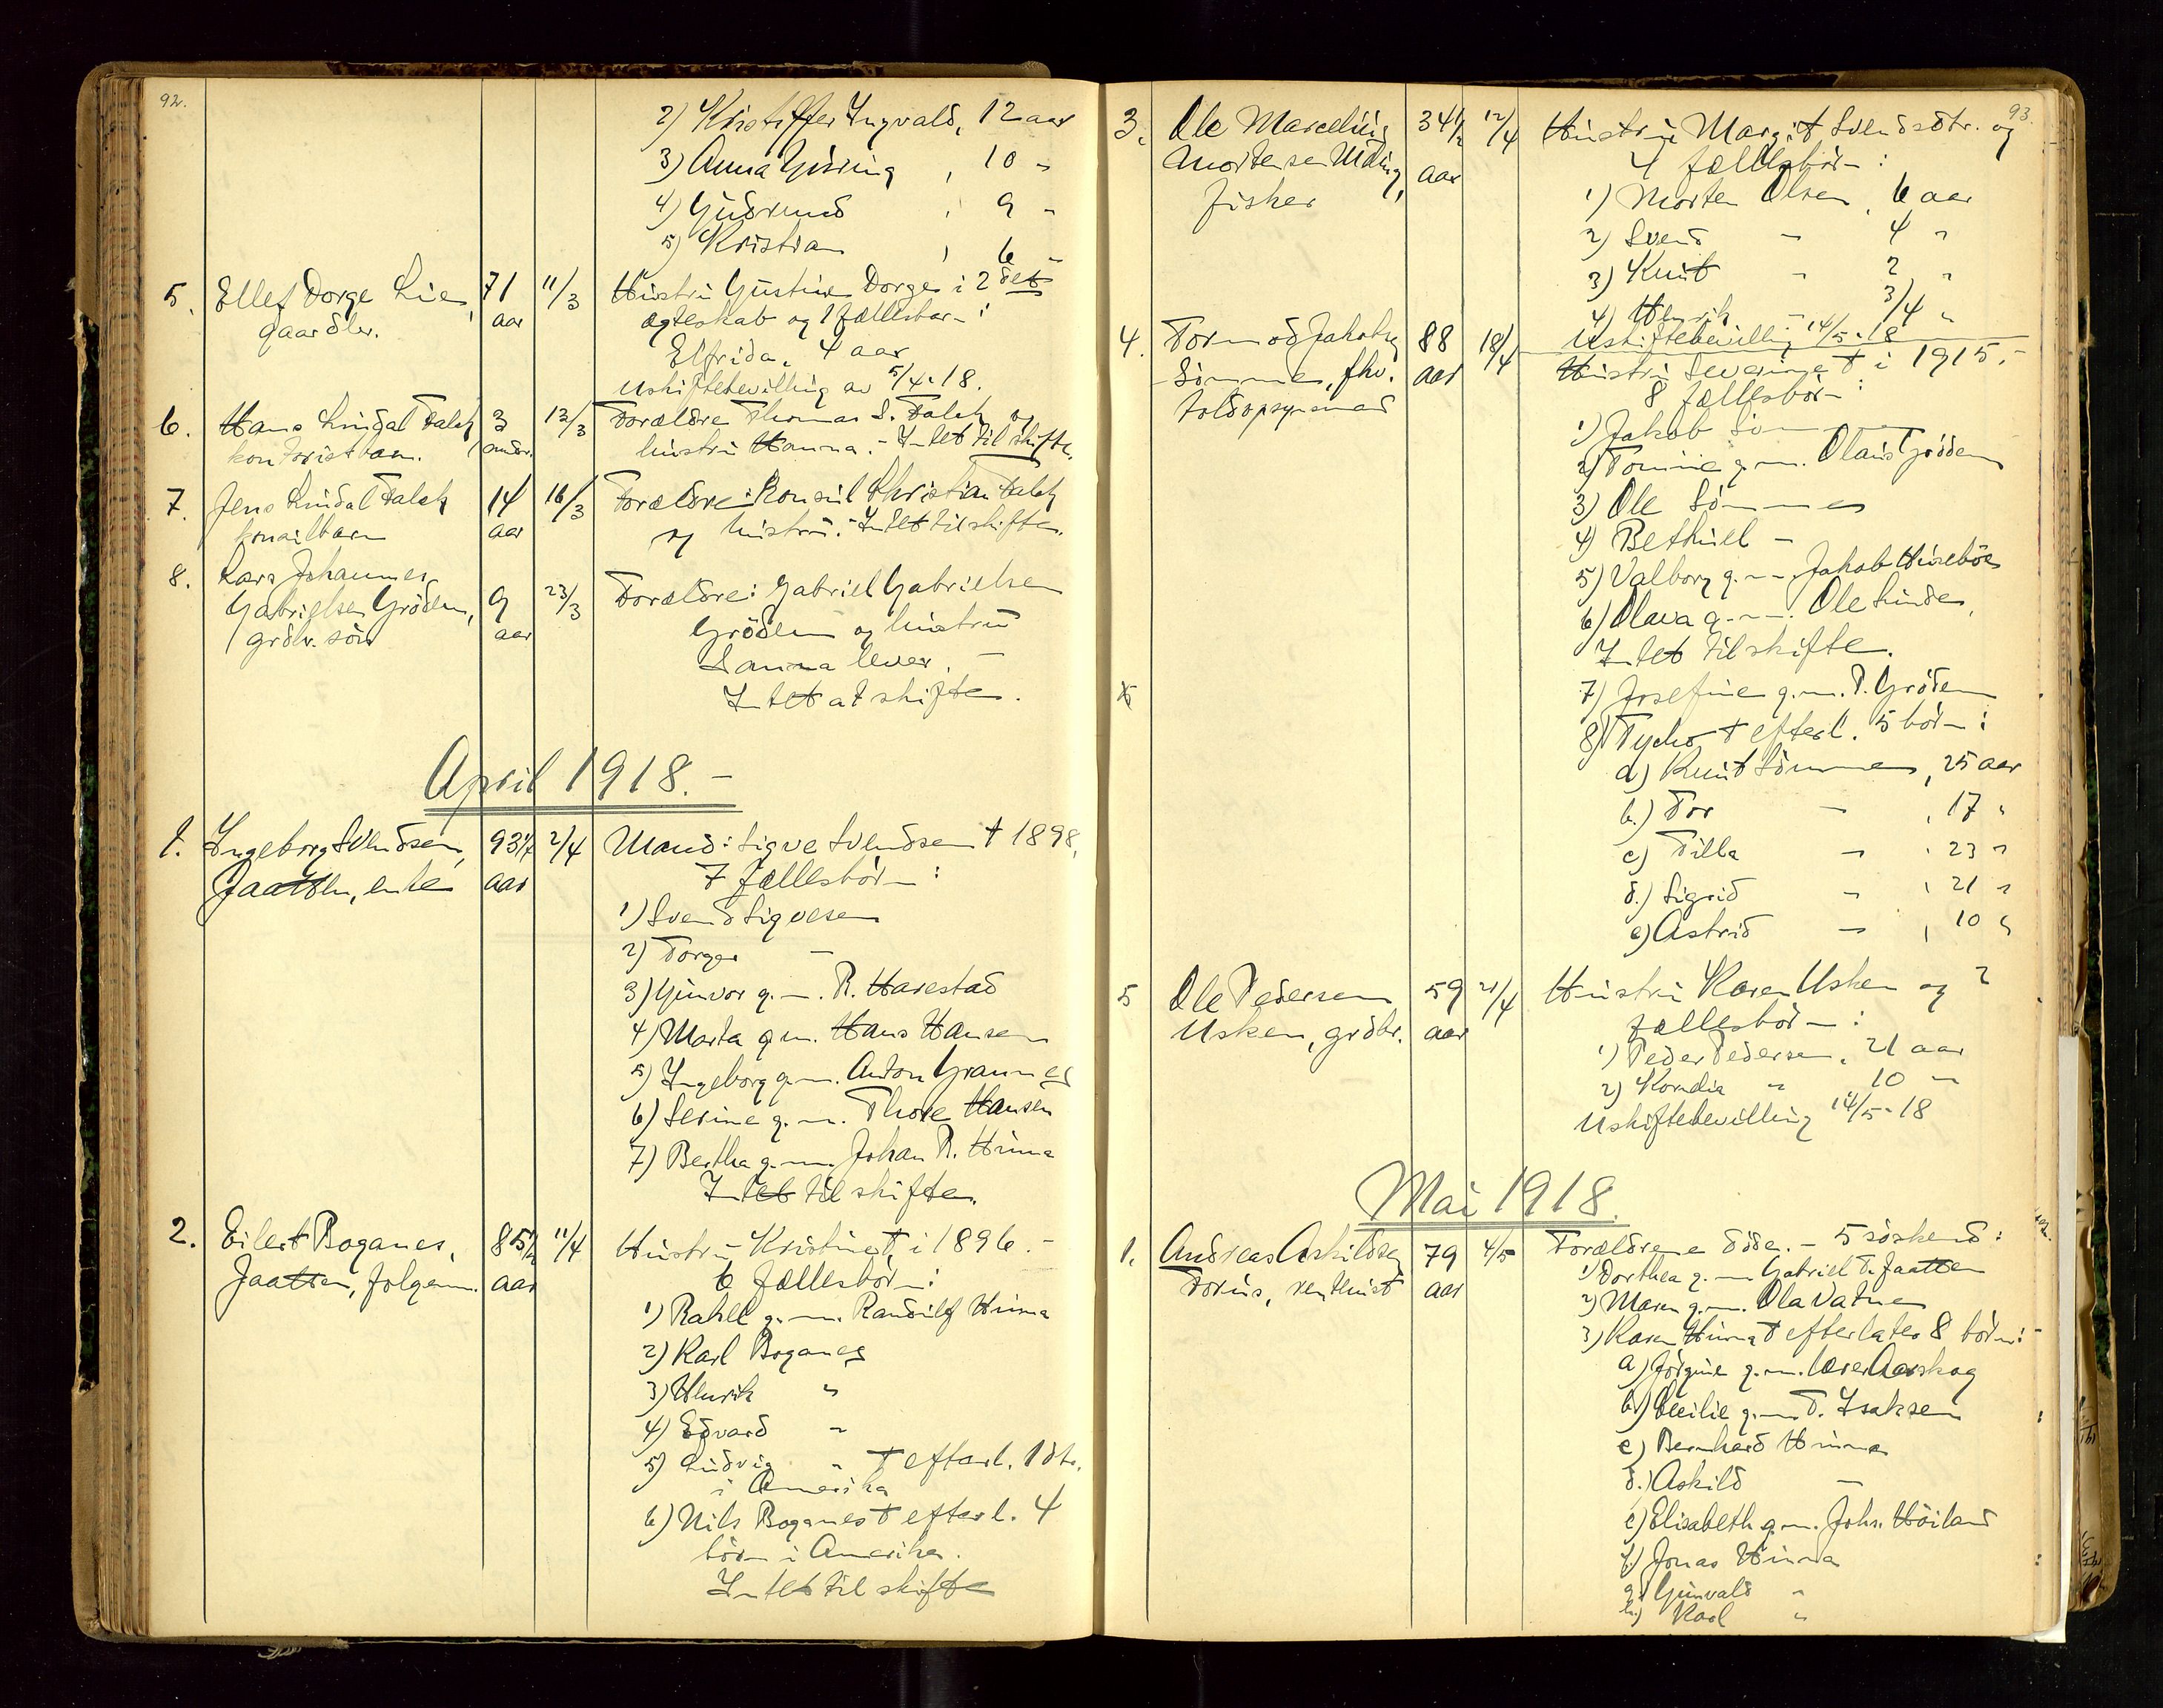 92.
2) Kristoffer Ingvald, 12 aar
3) Anna Gisring, 10 "
4) Gudrund, 9 "
5) Kristian, 6 "
5. Ellef Dorge Lie, 71 11/3 Hustru Gustine Dorge i 2det
gaardbr. aar egteskab og 1 fællesbarn:
Elfrida, 4 aar
Uskiftebevilling av 5/4-18.
6. Hans Lindal Falck, 3 13/3 Forældre Thomas S. Falck og
kontoristbarn. mdr. hustru Hanna. - Intet til skifte.
7. Jens Lindal Falck 14 16/3 Forældre: Konsul Christian Falck
konsulbarn aar og hustru. - Intet til skifte.
8. Lars Johannes
Gabrielsen Grödem, 9 23/3 Forældre: Gabriel Gabrielsen
grdbr. sön aar Grödem og hustru
Sanna lever. -
Intet at skifte.
April 1918. -
1. Ingeborg Svendsen, 93 1/2 2/4 Mand: Sigve Svendsen † 1898,
Jaatten, enke aar 7 fællesbörn:
1) Svend Sigvesen
2) Torger -
3) Gunvor g. m. R. Harestad
4) Marta g. m. Hans Hansen
5) Ingeborg g. m. Anton Grannes
6) Serine g. m. Thore Hansen
7) Bertha g. m. Johan R. Hinna
Intet til skifte.
2. Eilert Boganes, 85 1/2 11/4 Hustru Kristine † i 1896. -
Jaatten, folgem. aar 6 fællesbörn:
1) Rakel g. m. Randulf Hinna
2) Karl Boganes
3) Henrik "
4) Edvard "
5) Ludvig " † efterl. 1 dtr.
i Amerika
6) Nils Boganes † efterl. 4
börn i Amerika.
Intet til skifte
93.
3. Ole Marcelius 34 1/2 12/4 Hustru Margit Svendsdtr. og
Mortensen aar 4 fællesbörn:
fisker
1) Morten Olsen, 6 aar
2) Svend - 4 "
3) Knut - 2 "
4) Henrik - 3/4 "
Uskiftebevilling 14/5-18
4. Tormod Jakobsen 88 18/4 Hustru Severine † i 1915. -
Sömme, fhv. aar 8 fællesbörn:
toldopsynsmand
1) Jakob Sömme
2) Tomine g. m. Olaus Grödem
3) Ole Sömme
4) Bethuel -
5) Valborg g. m. Jakob Husebö
6) Olava g. m. Ole Linde,
Intet til skifte.
7) Josefine g. m. P. Grödem
8) Tycho † efterl. 5 börn:
a) Knut Sömme, 25 aar
b.) Tor -, 17 "
c) Tilla -, 23 "
d.) Sigrid -, 21 "
e) Astrid -, 10 "
5 Ole Pedersen 59 21/4 Hustru Karen Usken og 2
Usken, grdbr. aar fællesbörn:
1) Peder Pedersen, 21 aar
2) Kornelia " 10 "
Uskiftebevilling 14/5-18
Mai 1918.
1. Andreas Askildsen 79 4/5 Forældrene döde. - 5 söskend:
Forus, rentenist aar 1) Dorthea g. m. Gabriel T. Jaatten
2) Maren g. m. Ola Vatne
3) Karen Hinna † efterlater 8 börn:
a) Jörgine g. m. lærer Aarskog
b) Cecilie g. m. T. Isaksen
c) Bernhard Hinna
d.) Askild -
e) Elisabeth g. m. Johs. Höiland
f.) Jonas Hinna
g.) Gunvald "
h.) Karl "